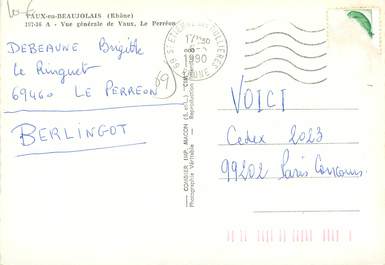 VAUX-en-BEAUJOLAIS (Rhône)
197-36 A - Vue générale de Vaux, Le Perréon
DEBEAUNE Brigitte
Le Ringuet
69460 LE PERREON
BERLINGOT
69
COMBIER IMP. MACON
Photographie Véritable
Reproduction
69 ST ETIENNE
1990
RHONE
VOICI
Cedex 2023
99202 Paris Concours